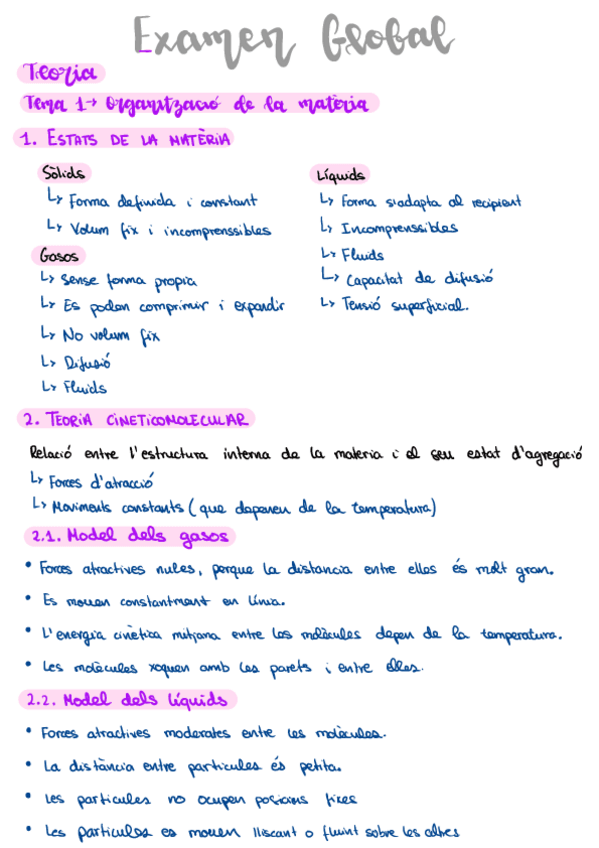 Examen Global
Teoria
Tema 1→ Organització de la matèria
1. ESTATS DE LA MATÈRIA
Sòlids
↳ Forma definida i constant
↳ Volum fix i incomprenssibles
Gasos
↳ Sense forma propia
↳ Es poden comprimir i expandir
↳ No volum fix
↳ Difusió
↳ Fluids
Líquids
↳ Forma s'adapta al recipient
↳ Incomprenssibles
↳ Fluids
↳ Capacitat de difusió
↳ Tensió superficial.
2. TEORIA CINETICOMOLECULAR
Relació entre l'estructura interna de la materia i el seu estat d'agregació
↳ Forces d'atracció
↳ Moviments constants (que depenen de la temperatura)
2.1. Model dels gasos
• Forces atractives nules, perque la distancia entre elles és molt gran.
• Es mouen constantment en línia.
• L'energia cinètica mitjana entre les molècules depen de la temperatura.
• Les molècules xoquen amb les parets i entre elles.
2.2. Model dels líquids
• Forces atractives moderates entre les molècules.
• La distància entre particules és petita.
• Les particules no ocupen posicions fixes
• Les particules es mouen lliscant o fluint sobre les altres